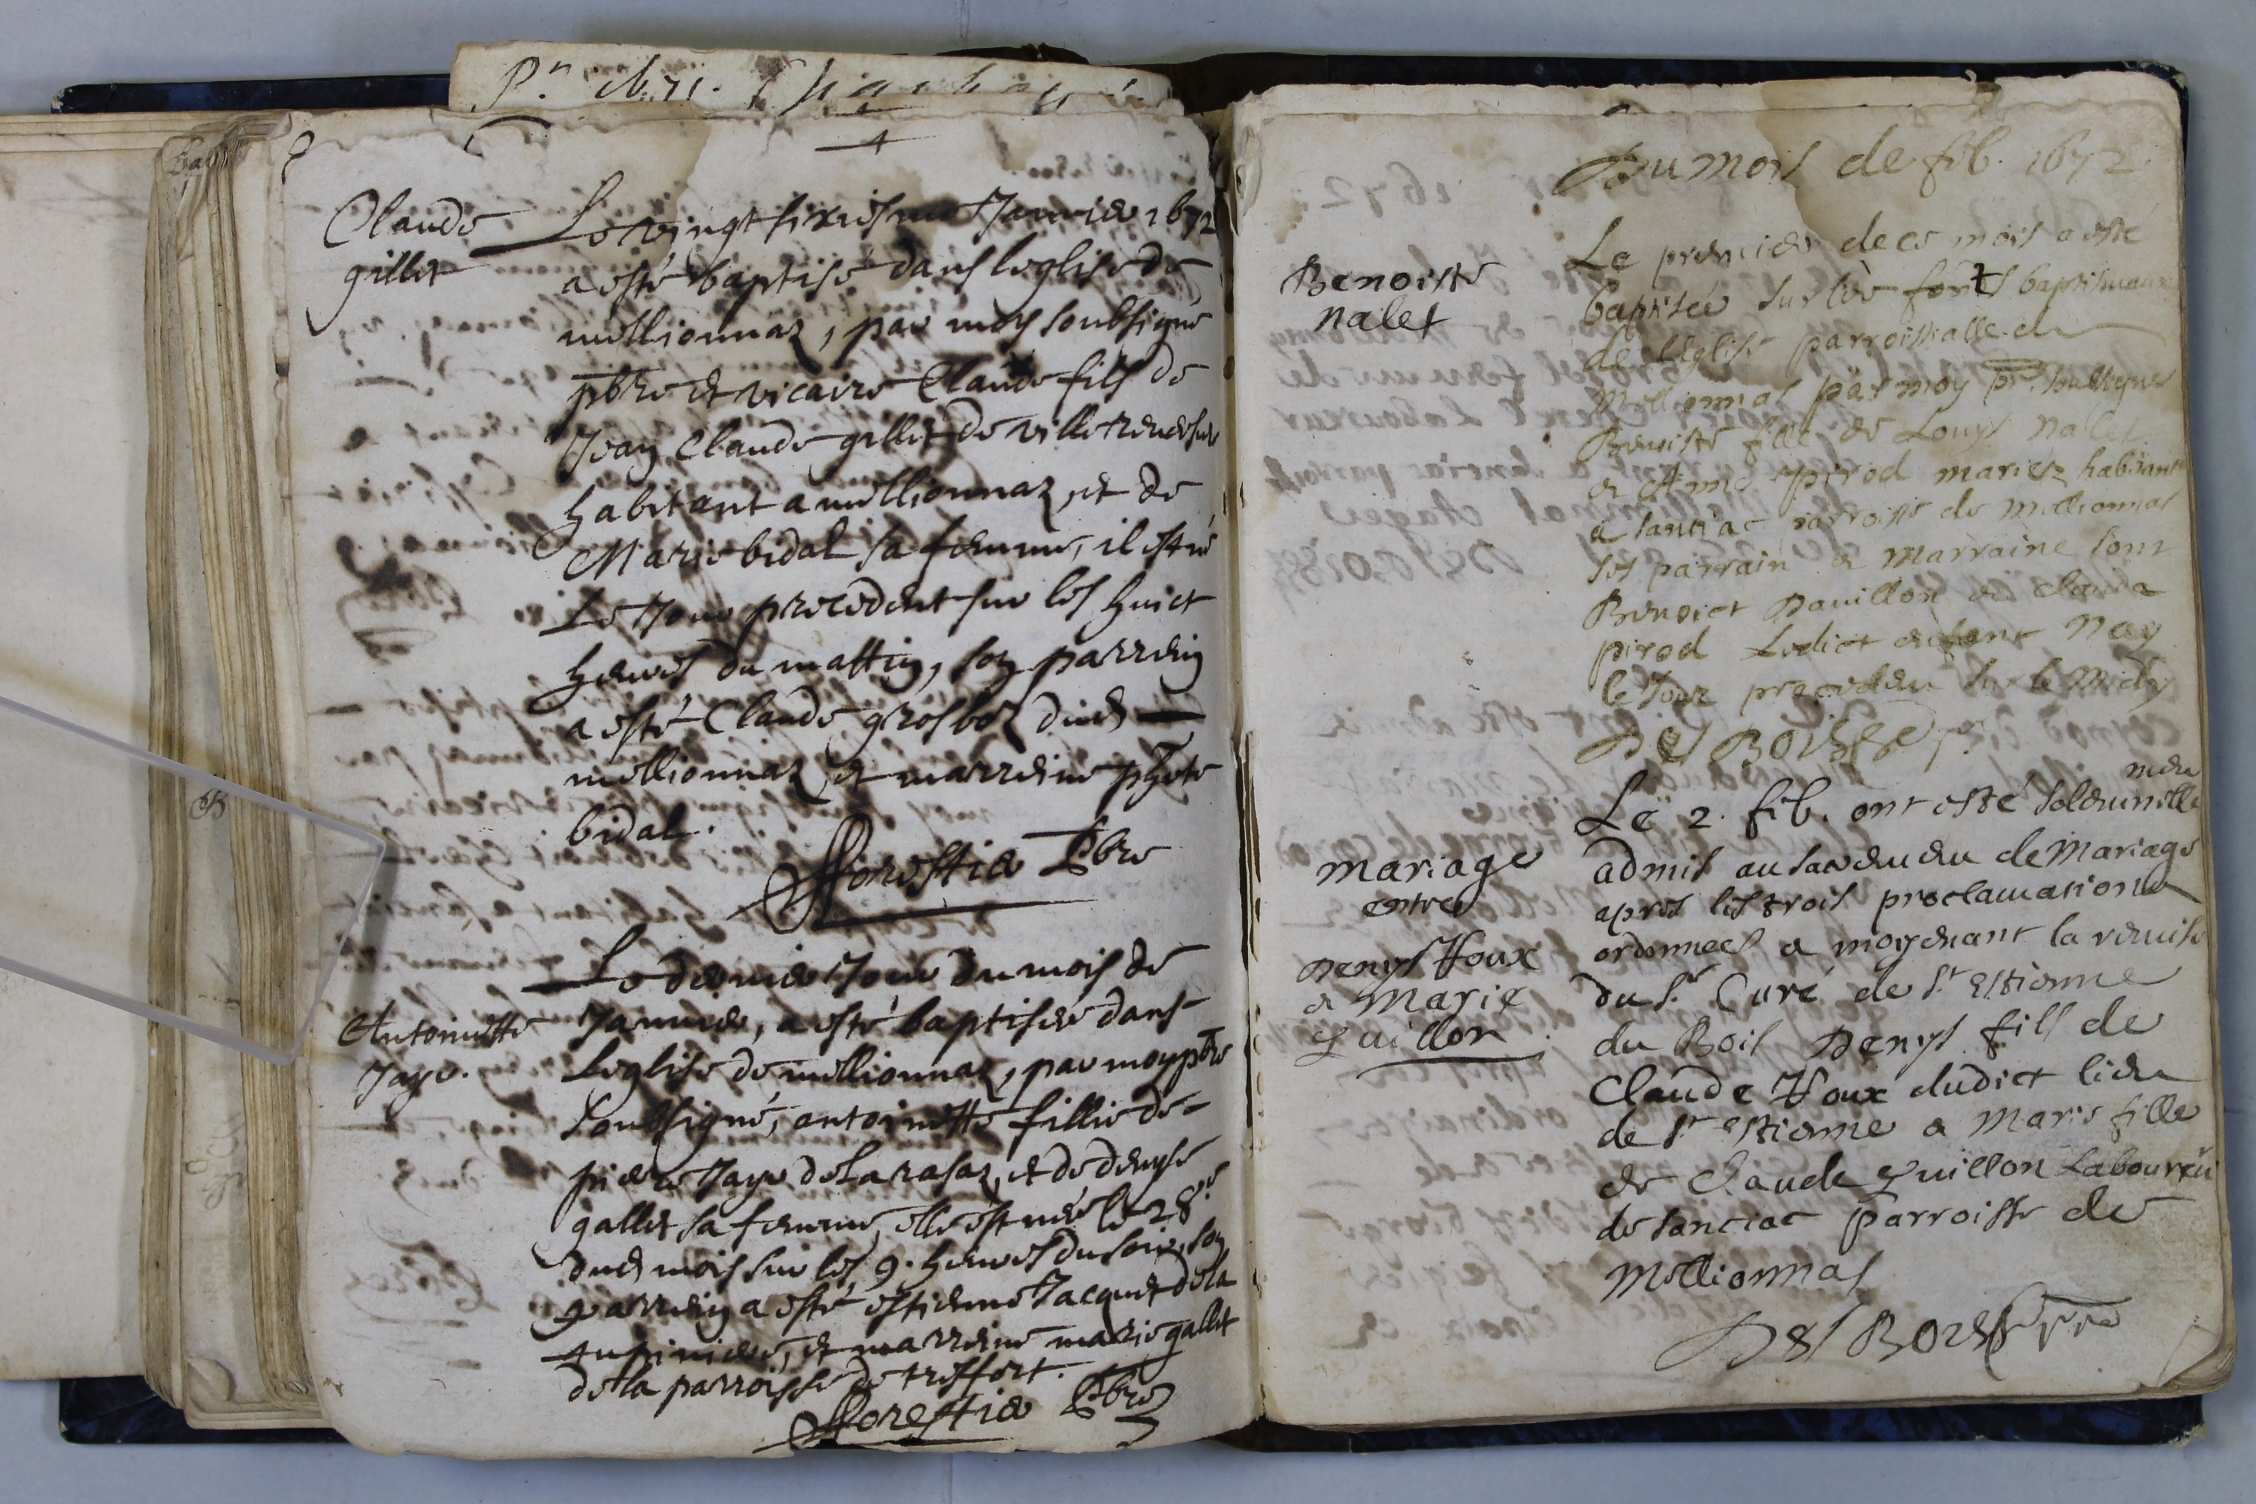 Claude
gillet
Le vingt sixiesme Janvier 1672
a esté baptisé dans leglise de
mellionnaz, par moy soubsigné
pbre et vicaire Claude fils de
Jean Claude gillet de villereversure
habitant a mellionnaz, et de
Marie bidal sa femme, il est né
Le Jour precedent sur les huict
heures du mattin, son parrein
a esté Claude grosboz dud
mellionnaz et marreine phte
bidal.
fforestier Pbre
Antoinette
Jaye.
Le dernier Jour du mois de
Janvier, a esté baptisée dans
Leglise de mellionnaz, par moy pbre
soubsigné, antoinette fillie de
pierre Jaye de Larasaz, et de denyse
gallet sa femme, elle est née le 28e
dud mois sur les 9. heures du soir, son
parrein a esté estienne Jacquet de la
tupiniere, et marreine marie gallet
de la parroisse de treffort.
fforestier Pbre
Du mois de feb. 1672
Benoiste
nalet
Le premier de ce mois a esté
baptisée sur les fonts baptismaux
de l'eglise parroissialle de
Mellionnas par moy pr. soubsigné
Benoiste fille de Louys Nalet
& Anne pirod mariéz habitant
a sanciac parroisse de Mellionnas
ses parrain & Marraine sont
Benoict Davillon et clauda
pirod Ledict enfant Nay
le Jour precedent sur le Midy
Des Boises pr
mariage
entre
Denys Voux
& Marie
Quillon
Le 2. feb. ont esté solemnelle
ment
admis au sacrement de Mariage
apres les trois proclamations
ordonnees & moyenant la remise
du sr Curé de st Estienne
du Bois Denys fils de
Claude Voux dudict lieu
de st estienne & Marie fille
de Claude Quillon Laboureur
de sanciac parroisse de
Mellionnas
Des Boises pre